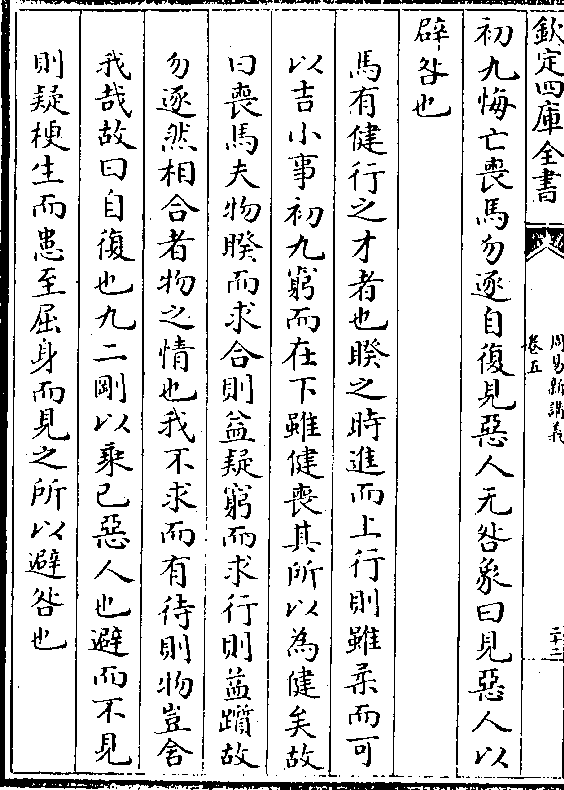 欽定四庫全書
周易新講義
卷五
二十三
初九悔亡喪馬勿逐自復見惡人无咎象曰見惡人以
辟咎也
馬有健行之才者也睽之時進而上行則雖柔而可
以吉小事初九窮而在下雖健喪其所以為健矣故
曰喪馬夫物睽而求合則益疑窮而求行則益躓故
勿逐然相合者物之情也我不求而有待則物豈舍
我哉故曰自復也九二剛以乘已惡人也避而不見
則疑梗生而患至屈身而見之所以避咎也